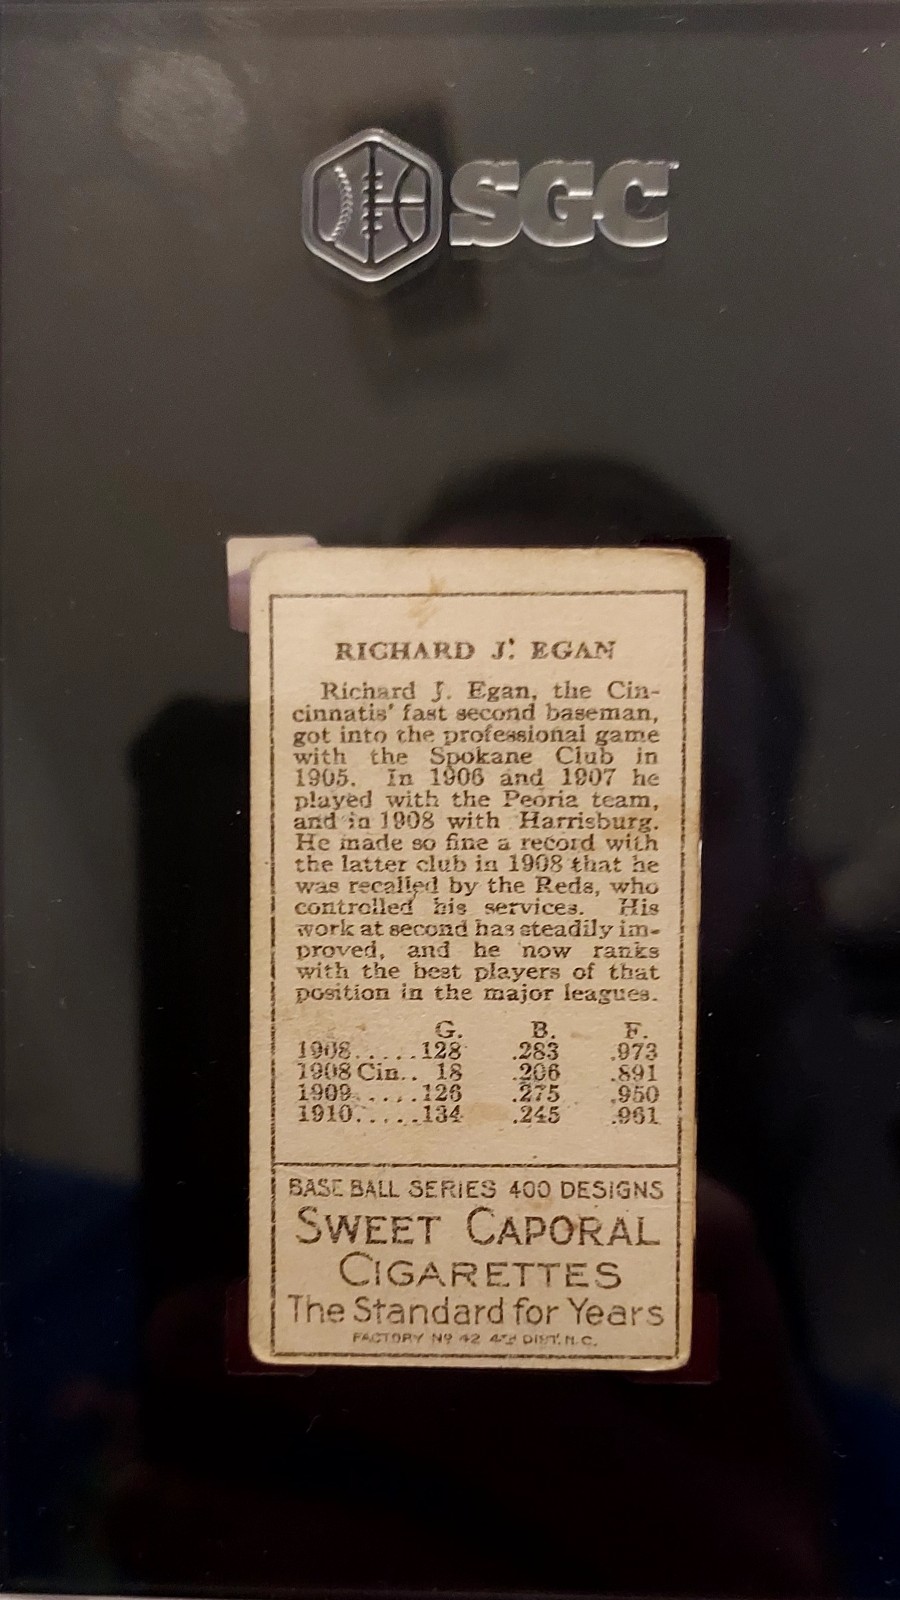 SGC
RICHARD J. EGAN
Richard J. Egan, the Cin-
cinnatis' fast second baseman,
got into the professional game
with the Spokane Club in
1905. In 1906 and 1907 he
played with the Peoria team,
and in 1908 with Harrisburg.
He made so fine a record with
the latter club in 1908 that he
was recalled by the Reds, who
controlled his services. His
work at second has steadily im-
proved, and he now ranks
with the best players of that
position in the major leagues.
G. B. F.
1908.....128 .283 .973
1908 Cin.. 18 .206 .891
1909.....126 .275 .950
1910.....134 .245 .961
BASE BALL SERIES 400 DESIGNS
SWEET CAPORAL
CIGARETTES
The Standard for Years
FACTORY No 42 4TH DIST. N.C.